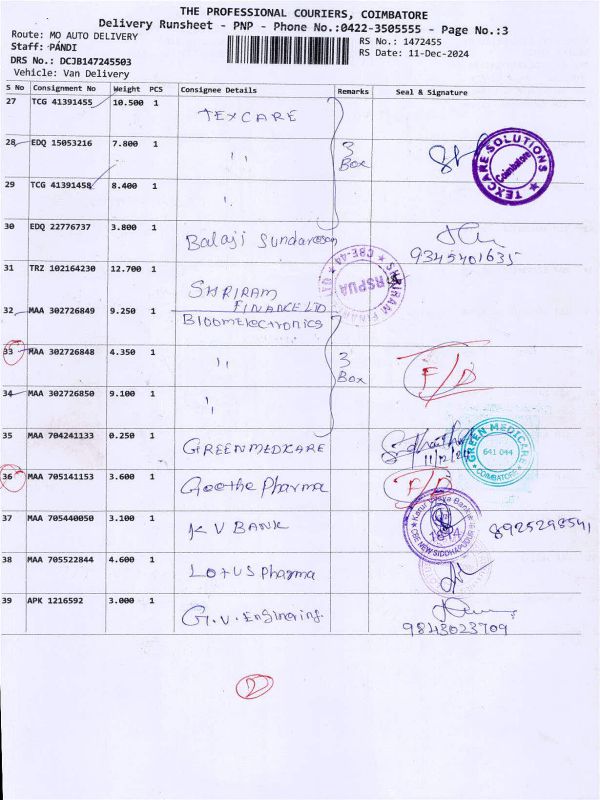 THE PROFESSIONAL COURIERS, COIMBATORE
Delivery Runsheet - PNP - Phone No.:0422-3505555 - Page No.:3
Route: MO AUTO DELIVERY
Staff: PANDI
DRS No.: DCJB147245503
Vehicle: Van Delivery
RS No.: 1472455
RS Date: 11-Dec-2024
S No Consignment No Weight PCS Consignee Details Remarks Seal & Signature
27 TCG 41391455 10.500 1 TEXCARE
28 EDQ 15053216 7.800 1 ,, 3 Box
TEXCARE SOLUTIONS Coimbatore
29 TCG 41391458 8.400 1 ,,
30 EDQ 22776737 3.800 1 Balaji Sundaresan 9345401635
31 TRZ 102164230 12.700 1 SHRIRAM FINANCE LTD
32 MAA 302726849 9.250 1 Bloom Electronics
33 MAA 302726848 4.350 1 ,, 3 Box F/D
34 MAA 302726850 9.100 1 ,,
35 MAA 704241133 0.250 1 GREENMEDKARE 11/12/24
GREEN MEDICARE 641 044 COIMBATORE
36 MAA 705141153 3.600 1 Goethe Pharma F/D
37 MAA 705440050 3.100 1 K V BANK 8925298541
38 MAA 705522844 4.600 1 LOTUS Pharma
39 APK 1216592 3.000 1 G.V. Enginering. 9843023709
2